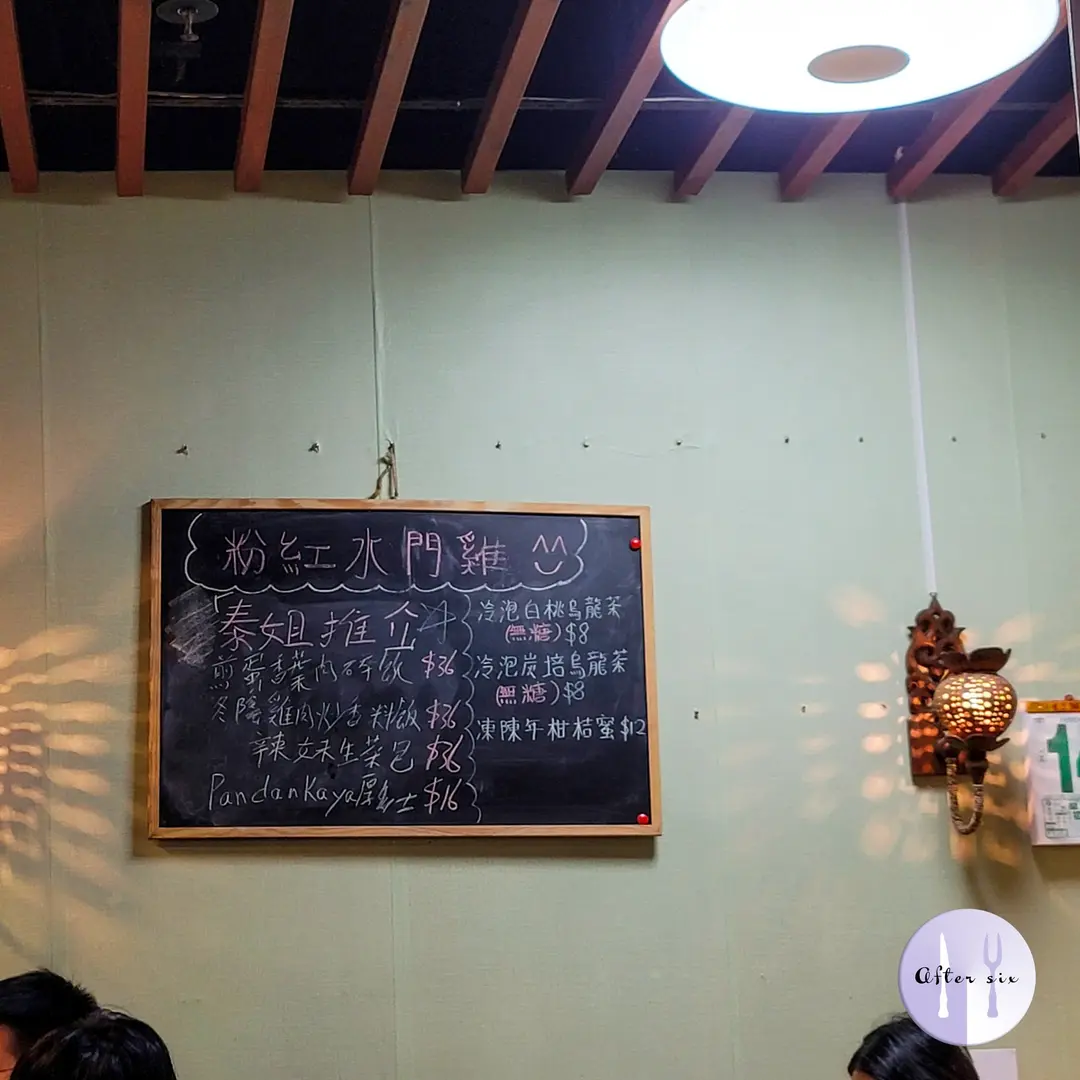 粉紅水門雞
泰姐推介
煎蛋香葉肉碎飯 $36
冬陰雞肉炒香料飯 $36
辣文未生菜包 $36
PandanKaya厚多士 $16
冷泡白桃烏龍茶
(無糖) $8
冷泡炭培烏龍茶
(無糖) $8
凍陳年柑桔蜜 $12
After six